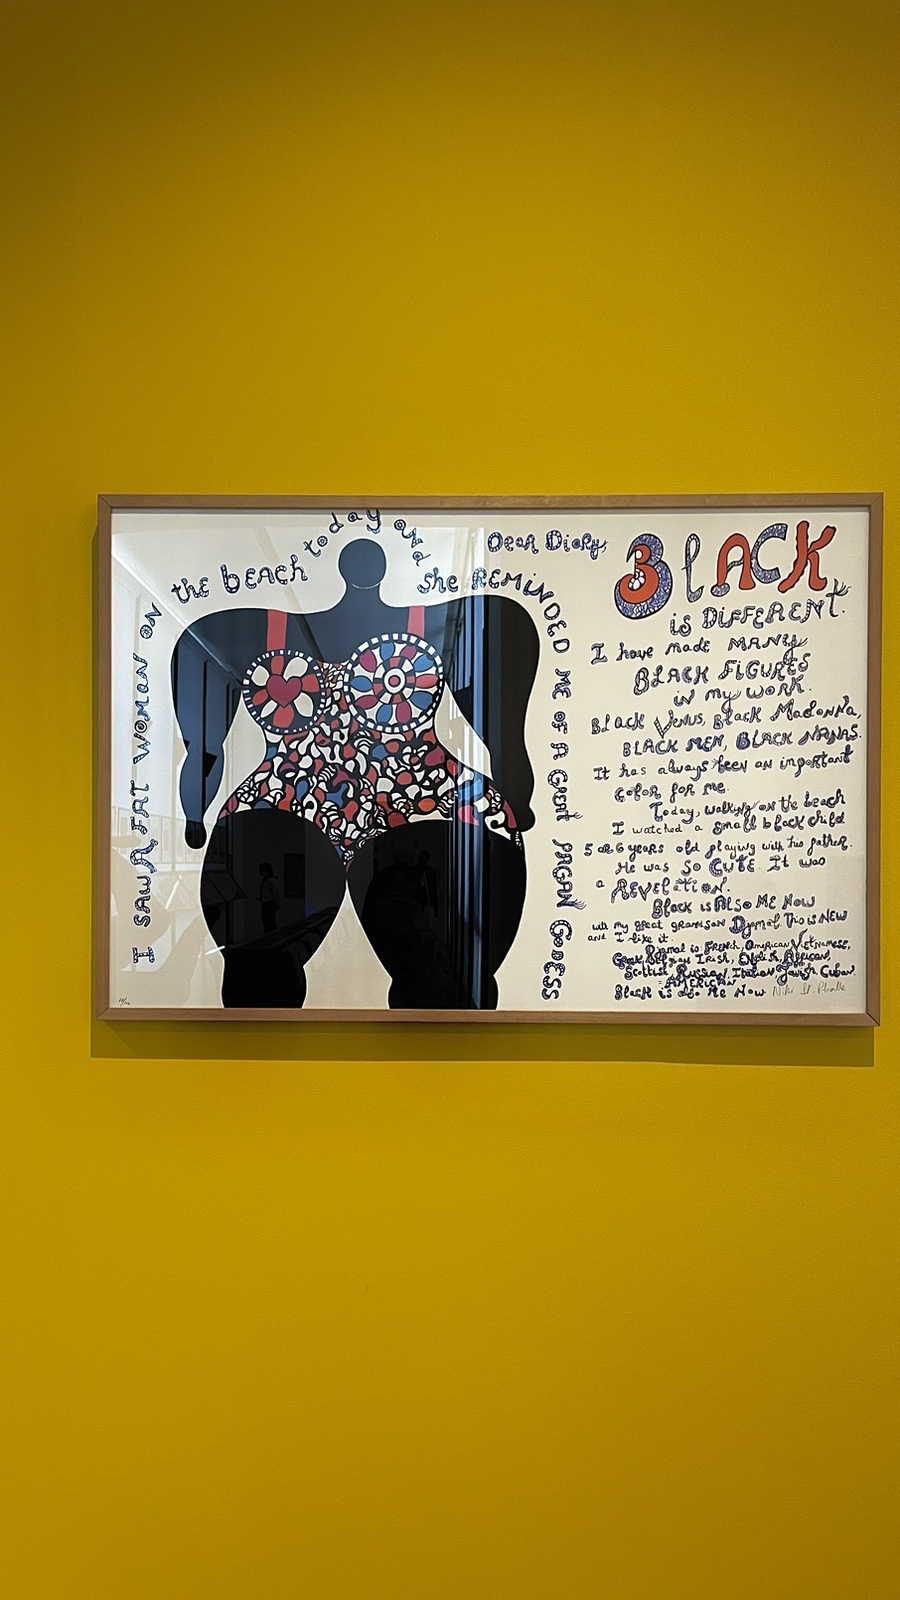 I SAW A FAT WOMAN ON the bEACH today and she REMINDED ME OF A GREAT PAGAN GODESS
Dear Diary
BlACK
is DiFFERENT.
I have made MANY
BLACK FIGURES
in my WORK.
Black Venus, Black Madonna,
BLACK MEN, BLACK NANAS.
It has always been an important
color for me.
Today, walking on the beach
I watched a small black child
5 or 6 years old playing with his father.
He was SO CUTE. It was
a REVELATION.
Black is Also ME NOW
with my great grandson Djamal. This is NEW
and I like it.
Djamal is FRENCH, American, Vietnamese,
Greek, Belgian, Irish, English, African,
Scottish, Russian, Italian, Jewish Cuban.
AMERICAN
Black is also Me Now
Niki St. Phalle